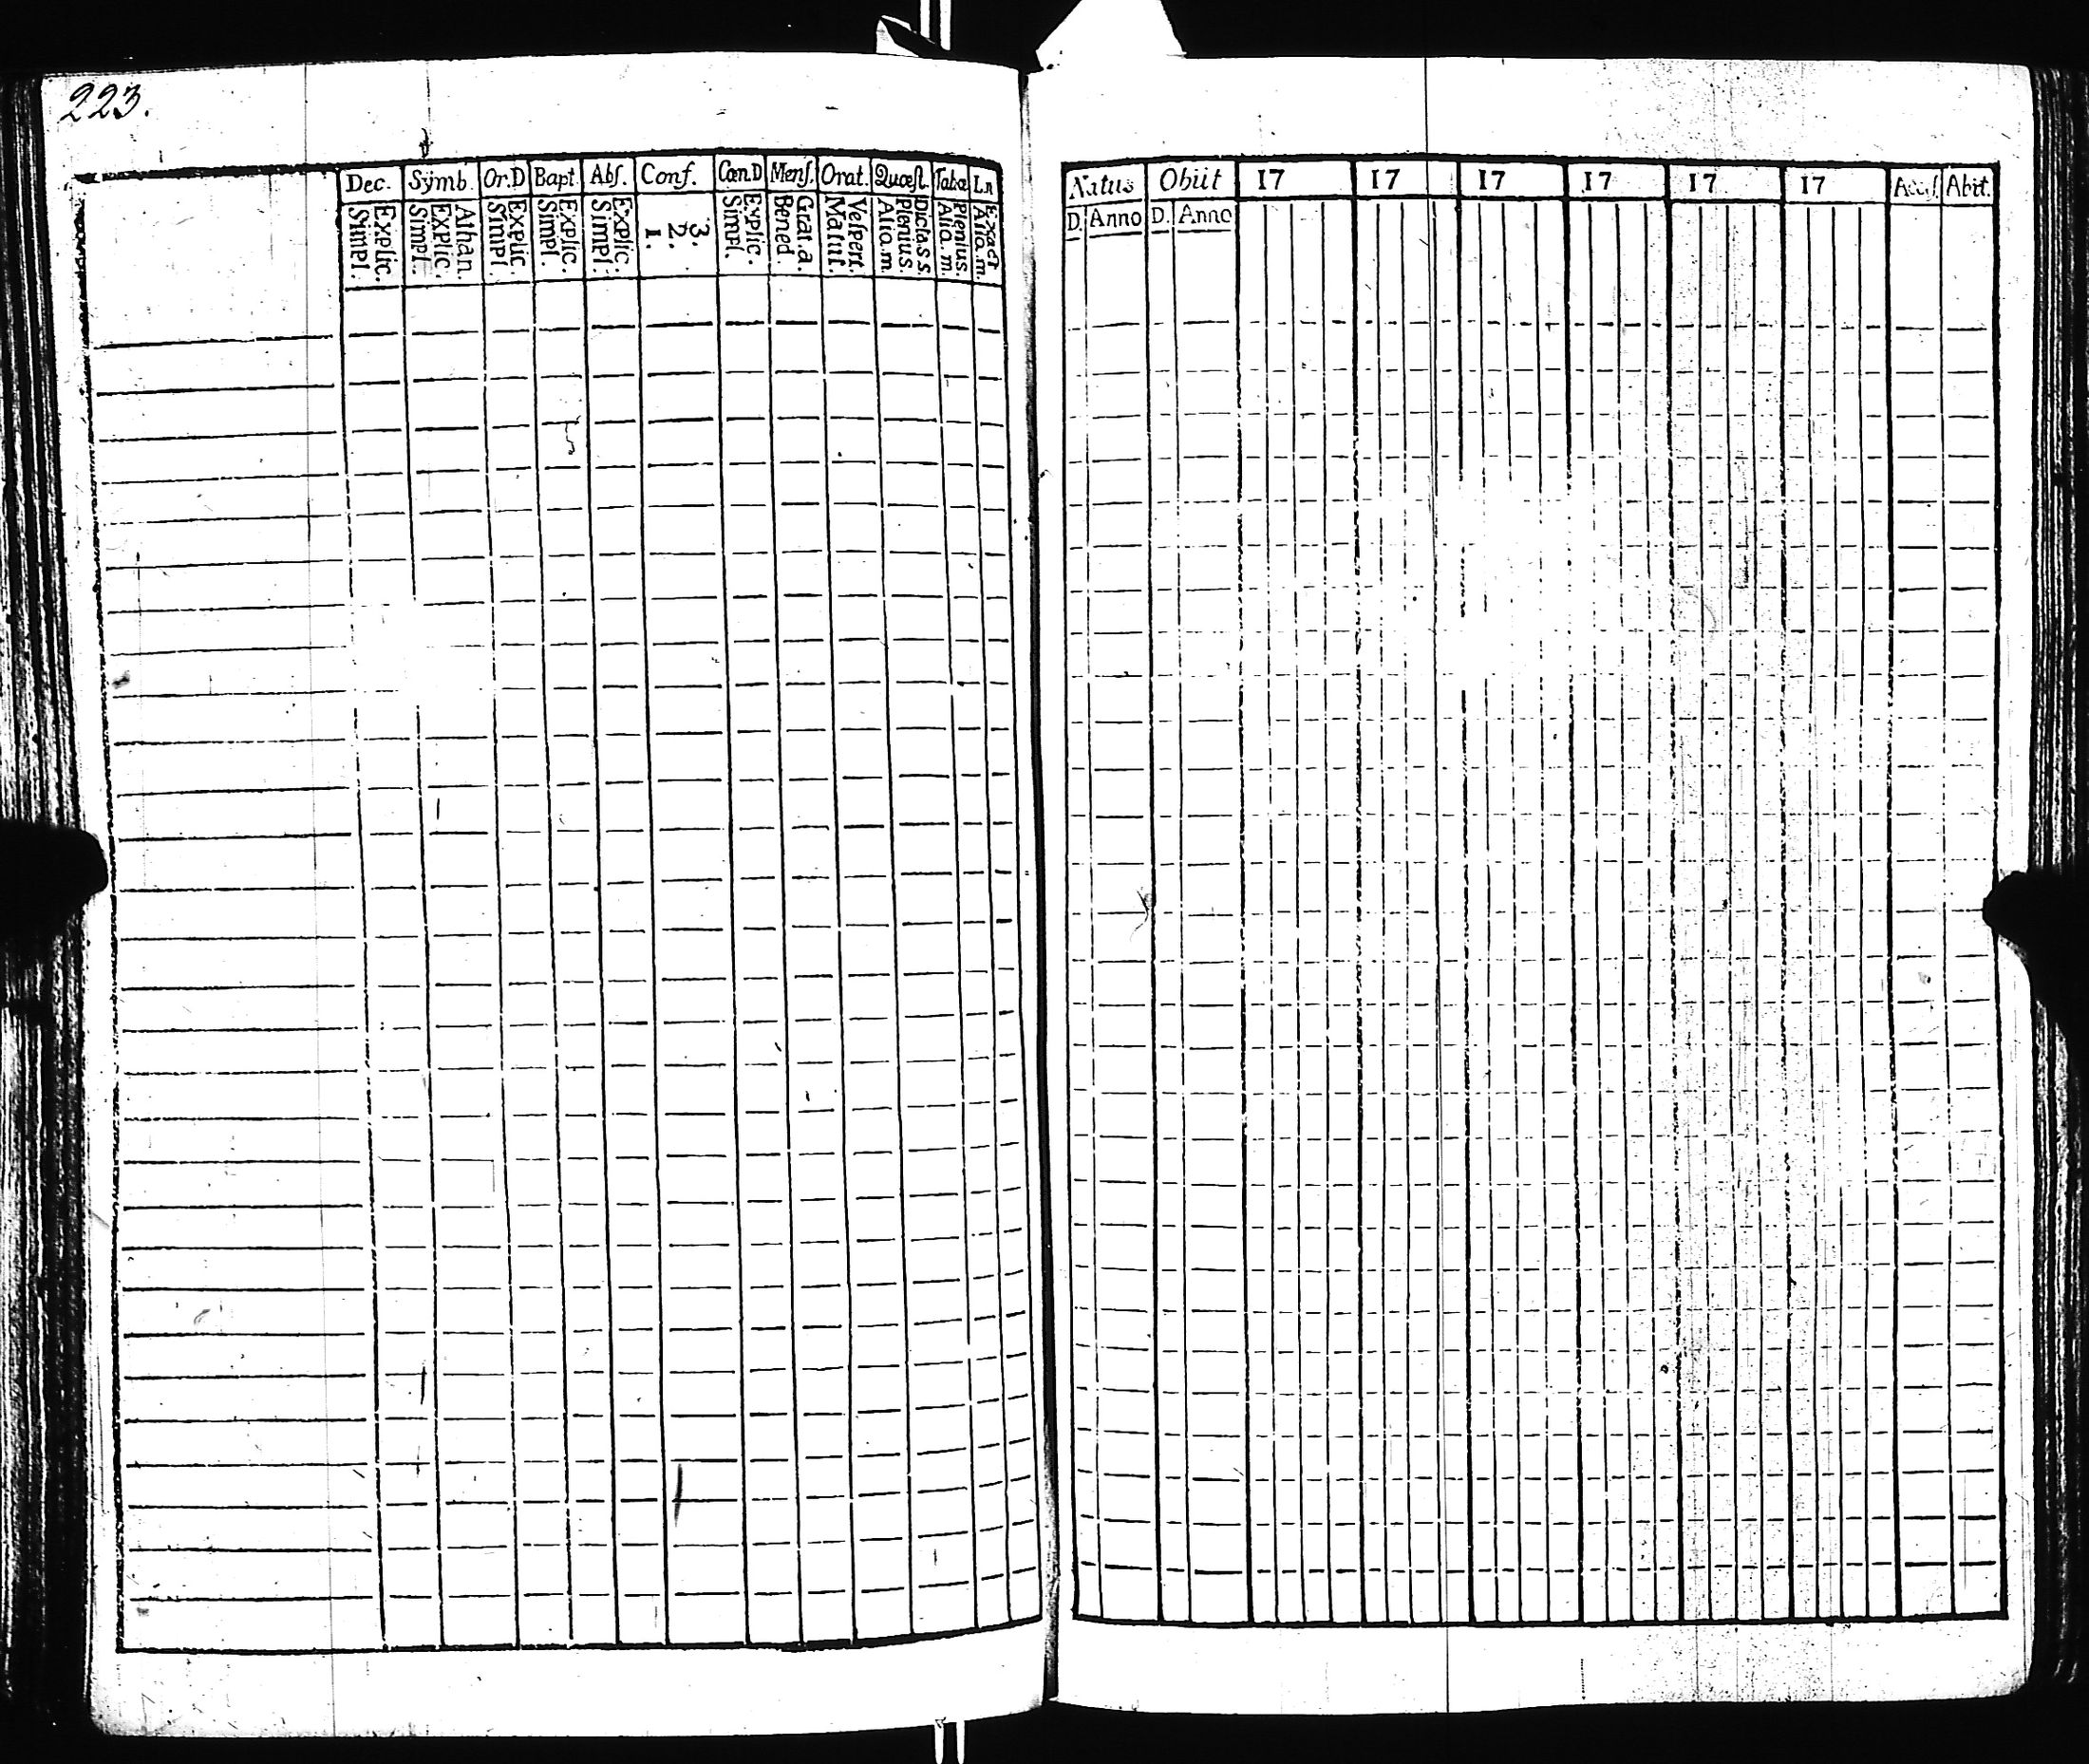 223.
Dec. Sÿmb. Or.D Bapt. Abſ. Conf. Cœn.D Menſ. Orat. Quæſt. Tabœ
Explic. Simpl.
Athan. Explic. Simpl.
Explic. Simpl.
Explic. Simpl.
Explic. Simpl.
3. 2. 1.
Explic. Simpl.
Grat.a. Bened
Veſpert. Matut.
Dicta.s s. Plenius. Alio.m.
Plenius. Alio.m.
Exact Alio.m.
Natus Obiit 17 17 17 17 17 17 Abit.
D. Anno D. Anno